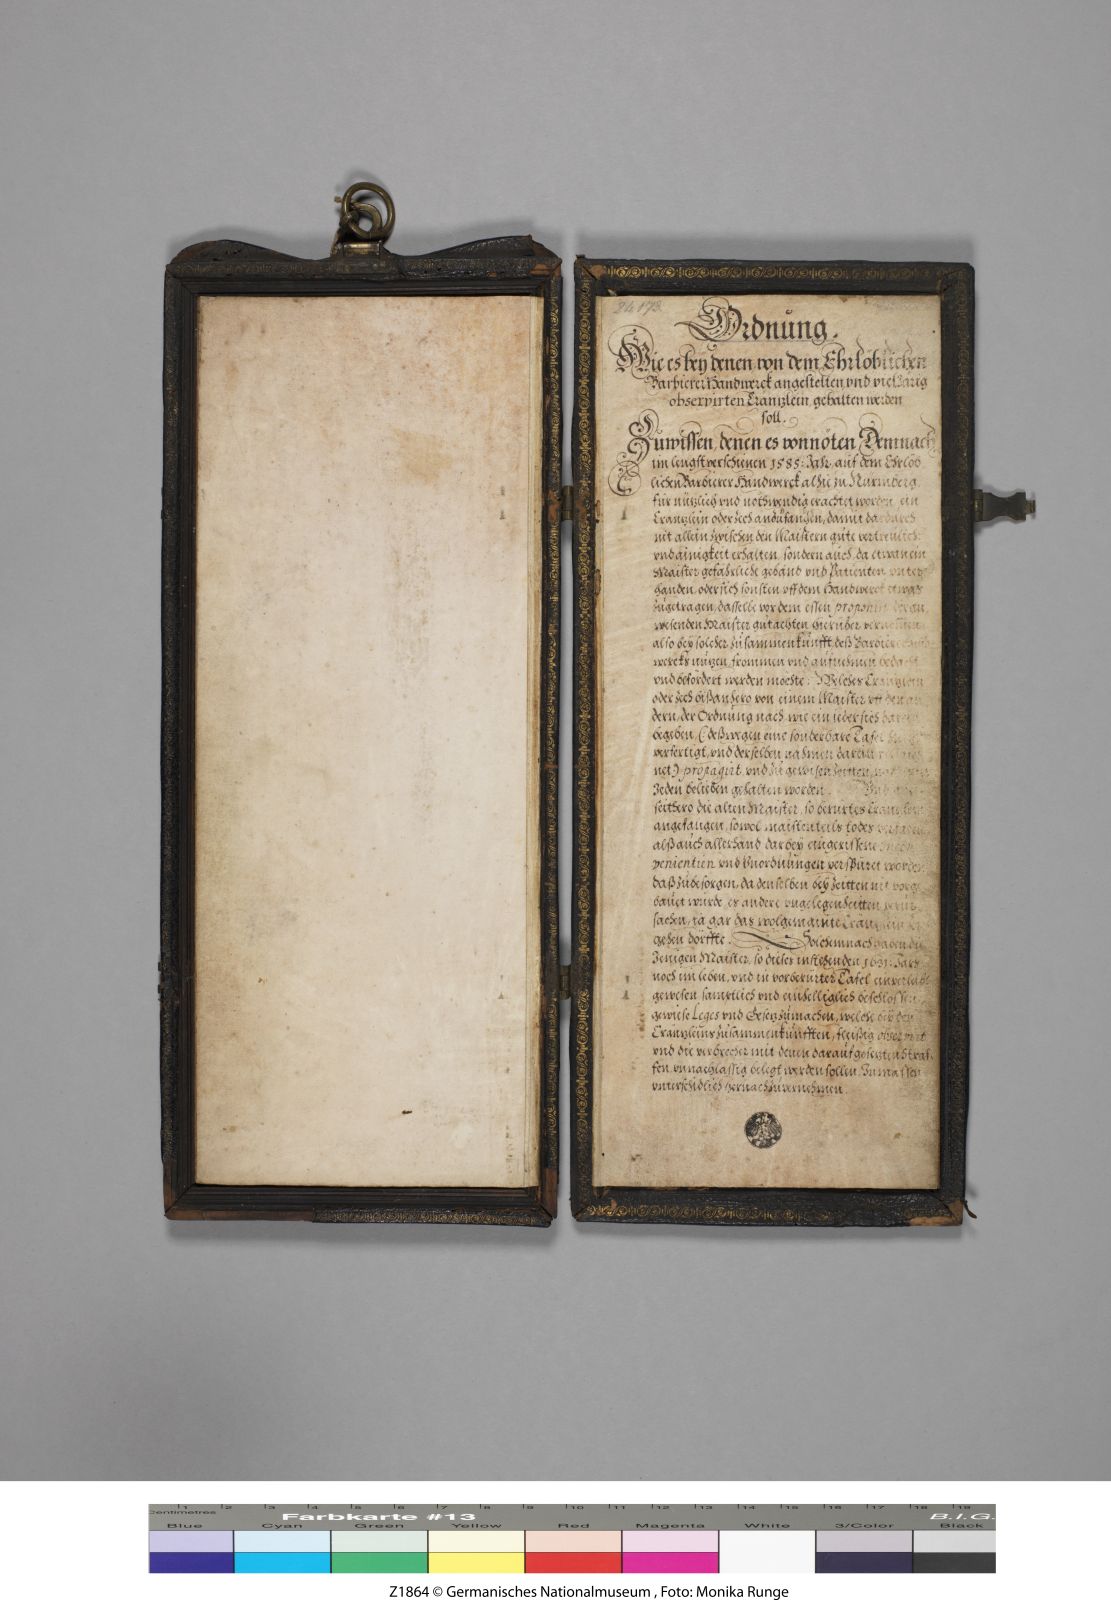 Ordnung.
Wie es bey denen von dem Ehrlöblichen
Barbierer Handwerck angestelten und vieljärig
observirten Cräntzlein gehalten werden
soll.
Zuwissen, denen es vonnöten Demnach
im lengst verschienen 1585: Jahr auf dem Ehrlöb
lichen Barbierer Handwerck alhie zu Nürmberg
für nützlich und nothwendig erachtet worden ein
Cräntzlein oder Zech anzufangen, damit dardurch
nit allein zwischen den Maistern gute vertreulich:
und ainigkeit erhalten, sondern auch, da etwan ein
Maister gefährliche gebänd und Patienten unter
handen, oder sich sonsten uff dem Handwerck etwas
zugetragen, dasselbe vor dem essen proponirt, der an
wesenden Maister gutachten hierüber vernommen
also bey solcher zusammenkunfft deß Barbierer Handt
wercks nutzen frommen und aufnehmen bedacht
und befördert werden möchte: Welches Cräntzlein
oder Zech bißanhero von einem Maister uff den an
dern, der Ordnung nach wie ein jeder sich
begeben, (deßwegen eine sonderbare Tafel
verfertigt, und derselben nahmen darein
net) propagirt und zu gewisen Zeitten,
Jeden belieben gehalten worden.
seithero die alten Maister, so berürtes Cräntzlein
angefangen, sowol maistenteils todes verfahren
alß auch allerhand darbey eingerissene
venientien und Unordnungen verspüret worden
daß zubesorgen, da denselben bey Zeitten nit vorge
bauet würde, es andere ungelegenheitten verur
sachen, ja gar das wolgemainte Cräntzlein
gehen dörffte. Solchemnach haben die
Jenigen Maister, so dieses instehenden 1621: Jars
noch im leben, und in vorberürter Tafel einverleibt
gewesen sämtlich und einhelliglich beschlossen,
gewise Leges und Gesetz zumachen, welche bey den
Cräntzleins zusammenkünfften, fleißig observirt
und die verbrecher mit denen darauf gesetzten Straf
fen unnachlässig belegt werden sollen. Inmassen
unterschidlich hernach zuvernehmen.
Centimetres 1 2 3 4 5 6 7 8 9 10 11 12 13 14 15 16 17 18 19
Farbkarte #13 B.I.G.
Blue Cyan Green Yellow Red Magenta White 3/Color Black
Z1864 © Germanisches Nationalmuseum , Foto: Monika Runge